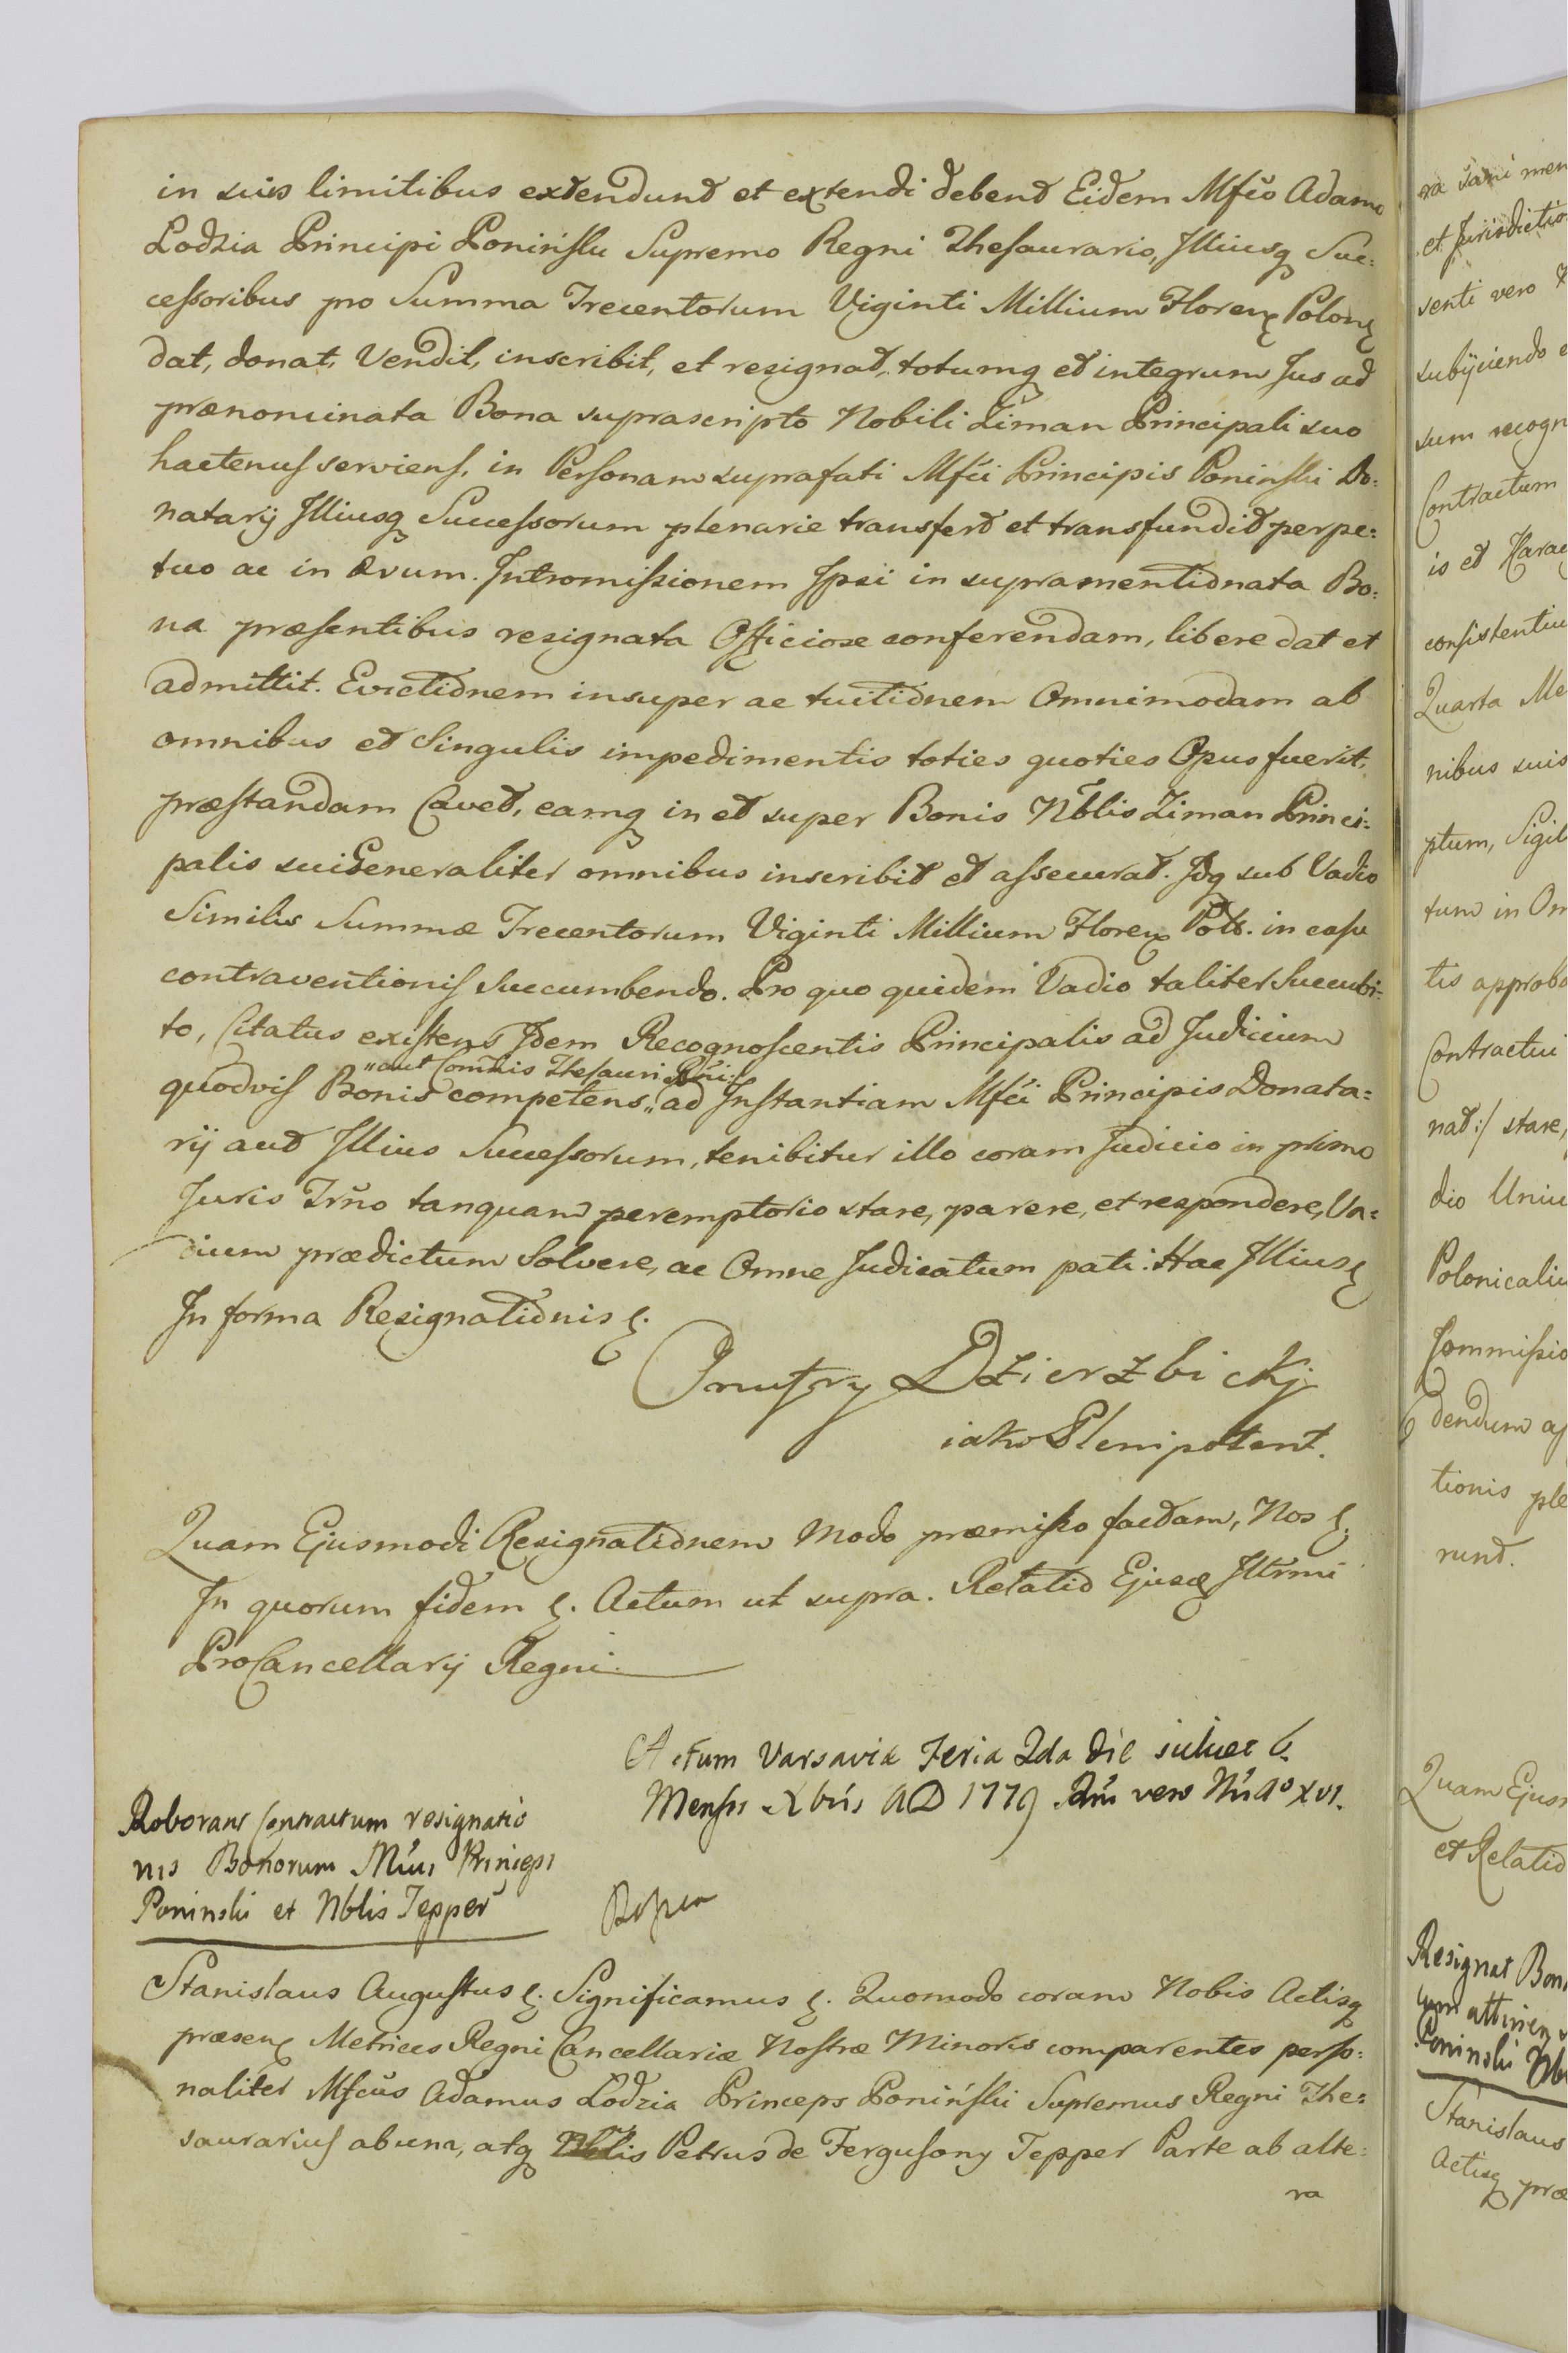 in suis limitibus extendunt et extendi debent Eidem Mfco Adamo
Lodzia Principi Poninsku Supremo Regni Thesaurario, Illiusq Suc:
cessoribus pro Summa Trecentorum Viginti Millium Floren Polon
dat, donat, Vendit, inscribit, et resignat, totumq et integrum Jus ad
prænominata Bona suprascripto Nobili Ziman Principali suo
hactenus serviens, in Personam suprafati Mfci Principis Poninski Do:
natarij Illiusq Successorum plenarie transfert et transfundit perpe:
tuo ac in Ævum. Intromissionem Ipsi in supramentionata Bo:
na præsentibus resignata Officiose conferendam, libere dat et
admittit. Evictionem insuper ac tuitionem Omnimodam ab
omnibus et Singulis impedimentis toties quoties Opus fuerit,
præstandam Cavet, eamq in et super Bonis Nblis Ziman Princi:
palis sui Generaliter omnibus inscribit et assecurat. Idq sub Vadio
Similis Summæ Trecentorum Viginti Millium Floren Polt. in casu
contraventionis Succumbendo. Pro quo quidem Vadio taliter Succubi:
to, Citatus existens Idem Recognoscentis Principalis ad Judicium
"aut Comnis Thesauri Rni:
quodvis Bonis competens," ad Instantiam Mfci Principis Donata:
rij aut Illius Successorum, tenibitur illo coram Judicio in primo
Juris Trno tanquam peremptorio stare, parere, et respondere, Va:
dium prædictum Solvere, ac Omne Judicatum pati: Hac Illius
In forma Resignationis
Onufry Dzierzbickj
iako Plenipotent.
Quam Ejusmodi Resignationem Modo præmisso factam, Nos
In quorum fidem. Actum ut supra. Relatio Ejusq Illrmi
ProCancellarij Regni.
Actum Varsaviæ Feria 2da die silicet 6.
Mensis Xbris AD 1779 Rni vero Nri Ao XVI.
Roborans Contractum resignatio
nis Bonorum Mfci Principi
Poninski et Nblis Tepper
Stanislaus Augustus. Significamus. Quomodo coram Nobis Actisq
præsen Metrices Regni Cancellariæ Nostræ Minoris comparentes perso:
naliter Mfcus Adamus Lodzia Princeps Poniński Supremus Regni The:
saurarius ab una, atq Nblis Petrus de Fergusony Tepper Parte ab alte:
ra
ra
et Jurisdictio
senti vero
subijciendo
sum recogn
Contractum
is et
consistentiu
Quarta Me
nibus suis
ptum, Sigil
tum in Om
tis approba
Contractui
nat:/ stare,
dio Uniu
Polonicaliu
Commissio
dendum
tionis ple
runt.
Quam Ejus
et Relatio
Resignat Bon
Poninski Nb
Stanislaus
Actisq præ